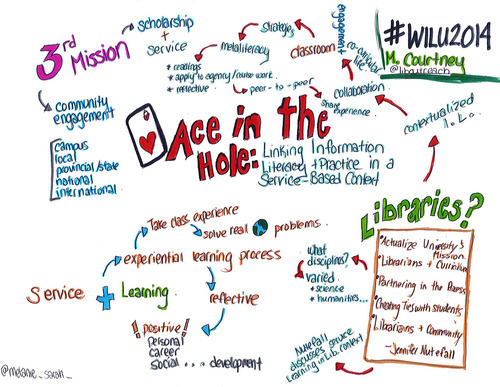 #WILU2014
M. Courtney
@liboutreach
3rd Mission
scholarship
+
service
community
engagement
campus
local
provincial/state
national
international
Strategies
metaliteracy
* readings
* apply to agency/course work.
* reflective.
classroom
engagement
co-curricular
life
peer-to-peer
collaboration
share
experience.
contextualized
I.L.
Ace in the
Hole:
Linking Information
Literacy + Practice in a
Service-Based Context
Libraries?
• Actualize University's
Mission
• Librarians + Curriculum
• Partnering in the Process
• Creating Ties with students
• Librarians + Community
- Jennifer Nutefall
Take class experience
solve real problems.
experiential learning process
Service + Learning
reflective
! positive!
Personal
career
social ... development
what
disciplines?
varied
* science
* humanities...
Nutefall
discusses service
Learning in Lib. context
@melanie_sarah_